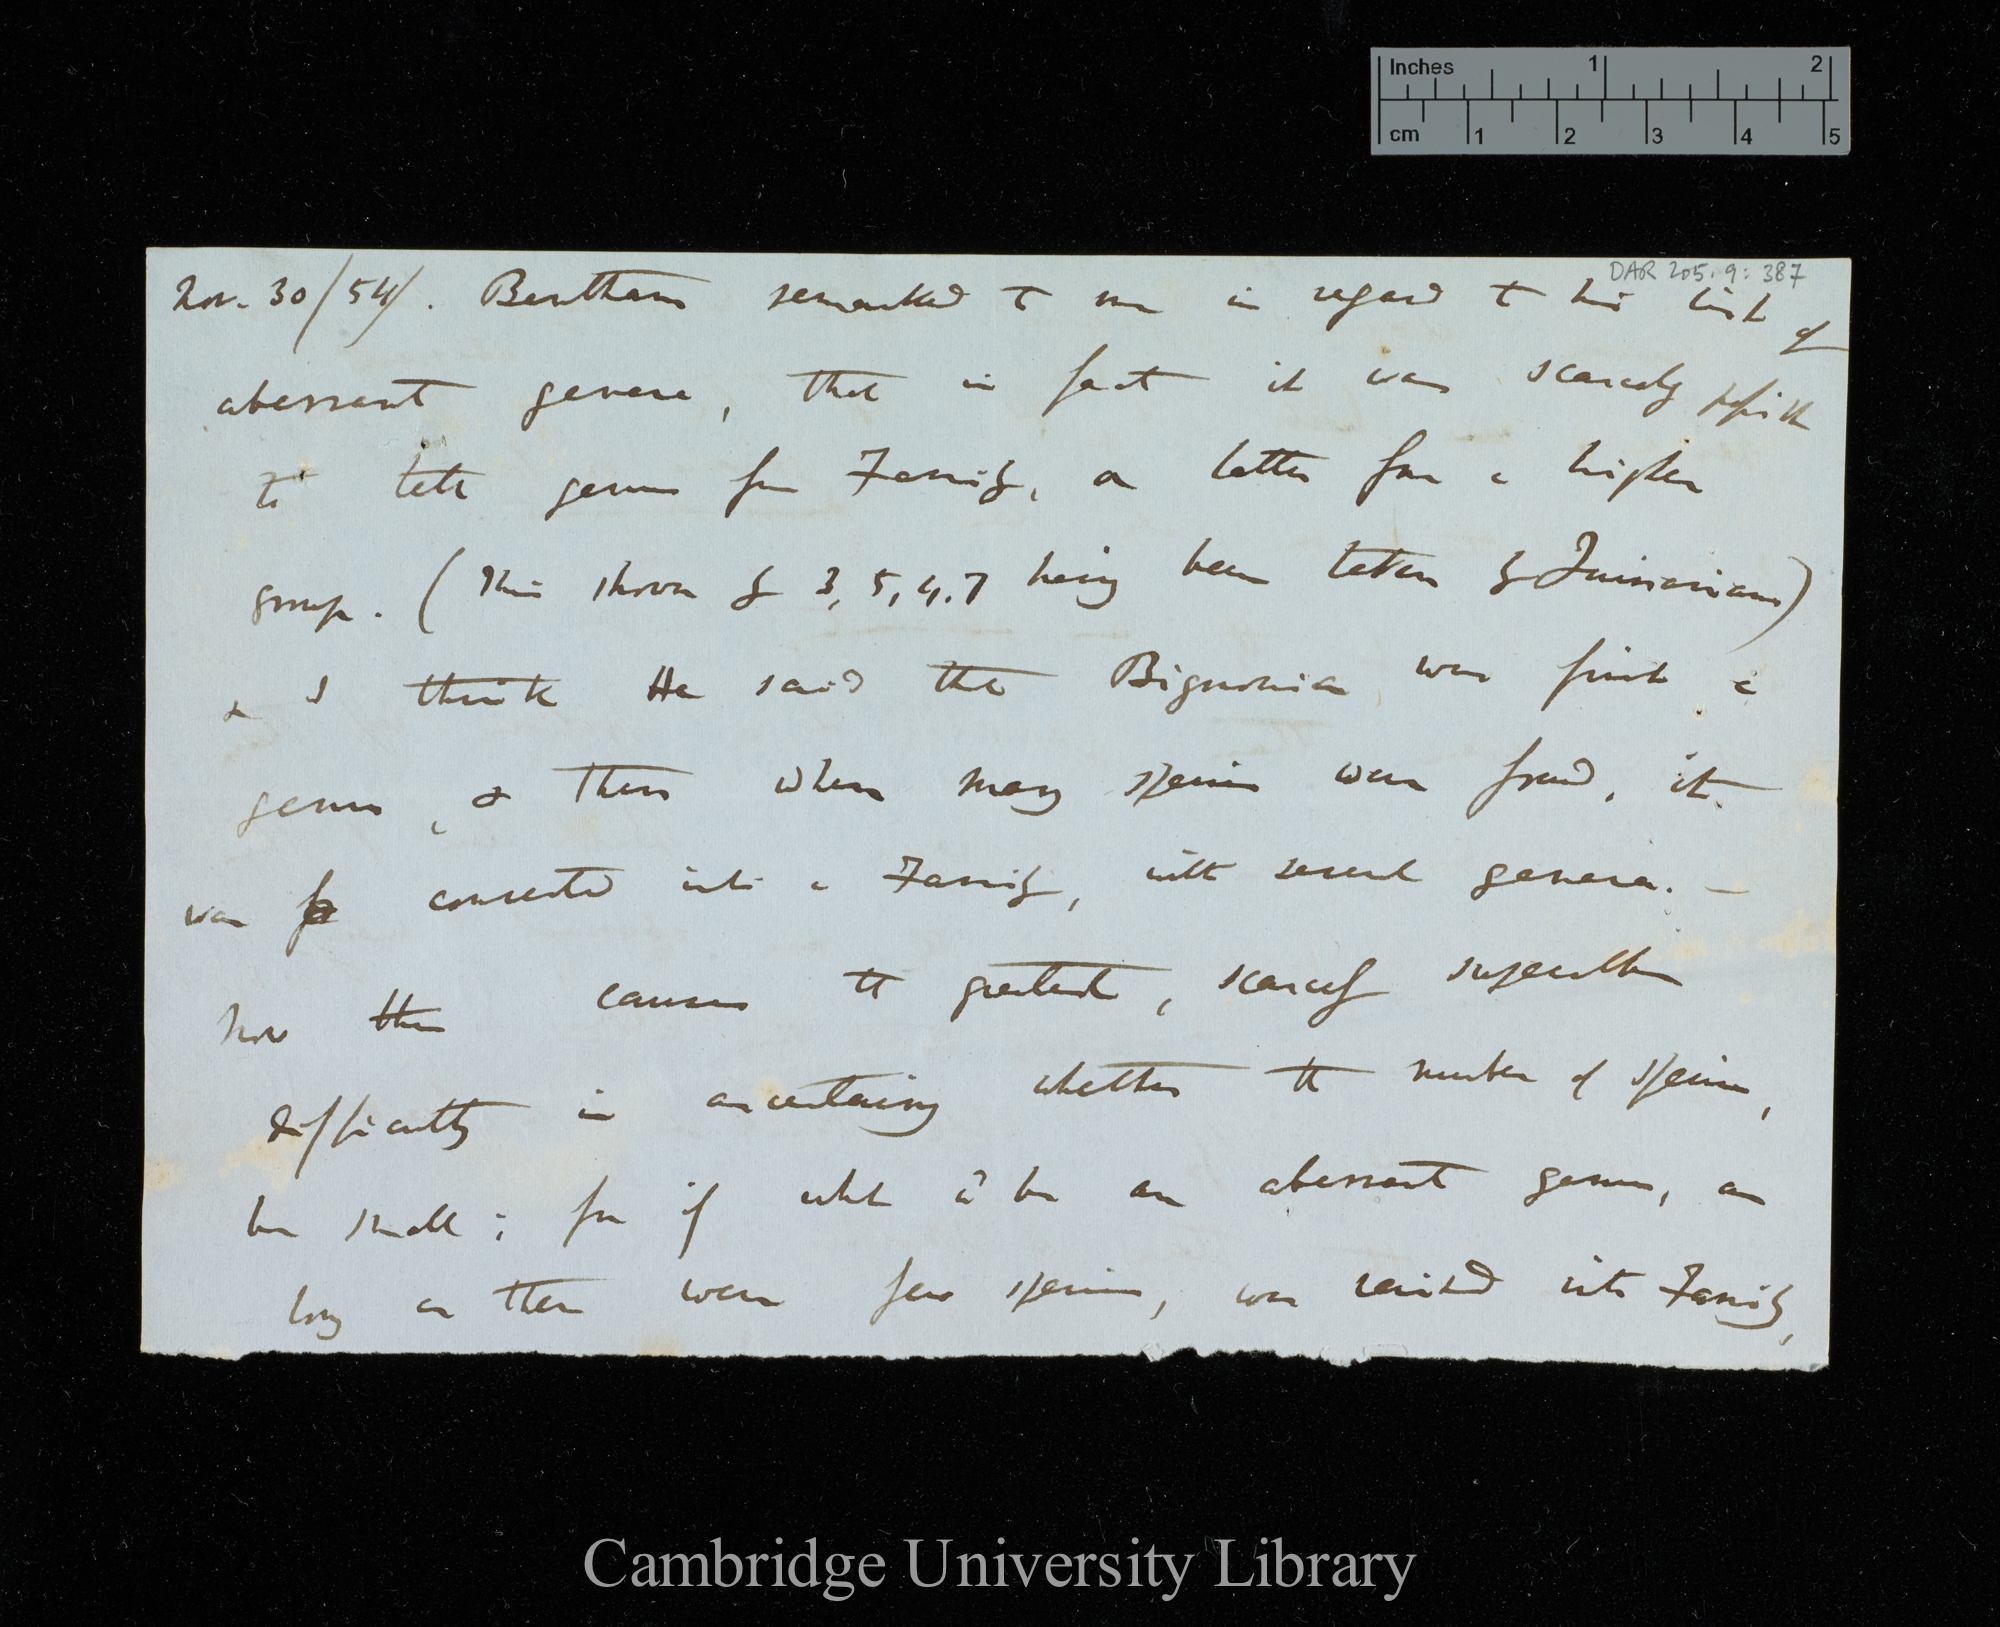 Inches 1 2
cm 1 2 3 4 5
DAR 205.9: 387
Nov. 30/54/. Bentham remarked to me in regard to his list of
aberrant genera, that in fact it was scarcely possible
to tell genus from Family, or latter from a higher
group. (This shown by 3, 5, 4, 7 having been taken by Quinarians)
& I think He said that Bignonia was first a
genus, & then when many species were found, it
was converted into a Family, with several genera. —
Now this causes the greatest, scarcely superable
difficulty in ascertaining whether the number of species,
be small; for if what wd be an aberrant genus, as
long as there were few species, was raised into Family,
Cambridge University Library